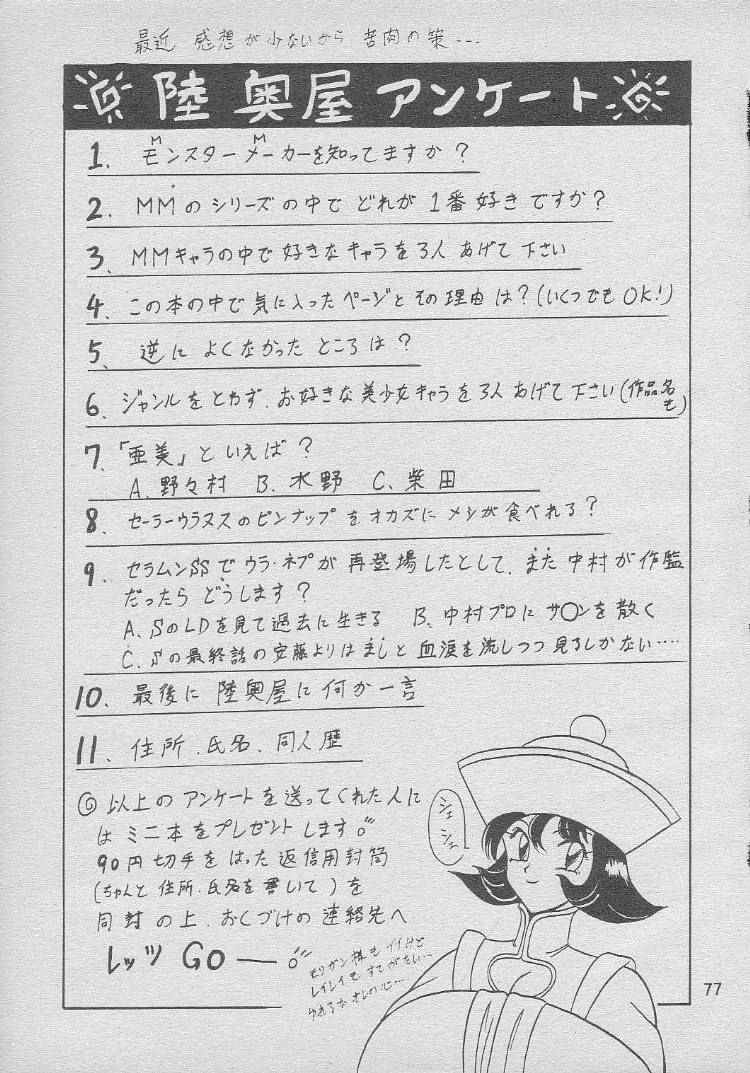 最近 感想が少ないから 苦肉の策…
陸奥屋 アンケート
1. モンスターメーカーを知ってますか？
M M
2. MMのシリーズの中で どれが 1番好きですか？
3. MMキャラの中で好きなキャラを3人あげて下さい
4. この本の中で気に入ったページとその理由は？(いくつでもOK!)
5. 逆に よくなかった ところは？
6. ジャンルをとわず、お好きな美少女キャラを3人あげて下さい(作品名も)
7. 「亜美」といえば？
A. 野々村 B. 水野 C. 柴田
8. セーラーウラヌスのピンナップをオカズにメシが食べれる？
9. セラムンSSでウラ・ネプが再登場したとして、また中村が作監
だったら どうします？
A. SのLDを見て過去に生きる B. 中村プロにサ〇ンを散く
C. Sの最終話の安藤よりはましと血涙を流しつつ見るしかない……
10. 最後に 陸奥屋に何か一言
11. 住所、氏名、同人歴
◎ 以上のアンケートを送ってくれた人に
はミニ本をプレゼントします
90円切手をはった返信用封筒
(ちゃんと住所、氏名を書いて)を
同封の上、おくづけの連絡先へ
レッツ GO ―
シェ
シェ
モリガン様もイイけど
レイレイもすてがたい…
77